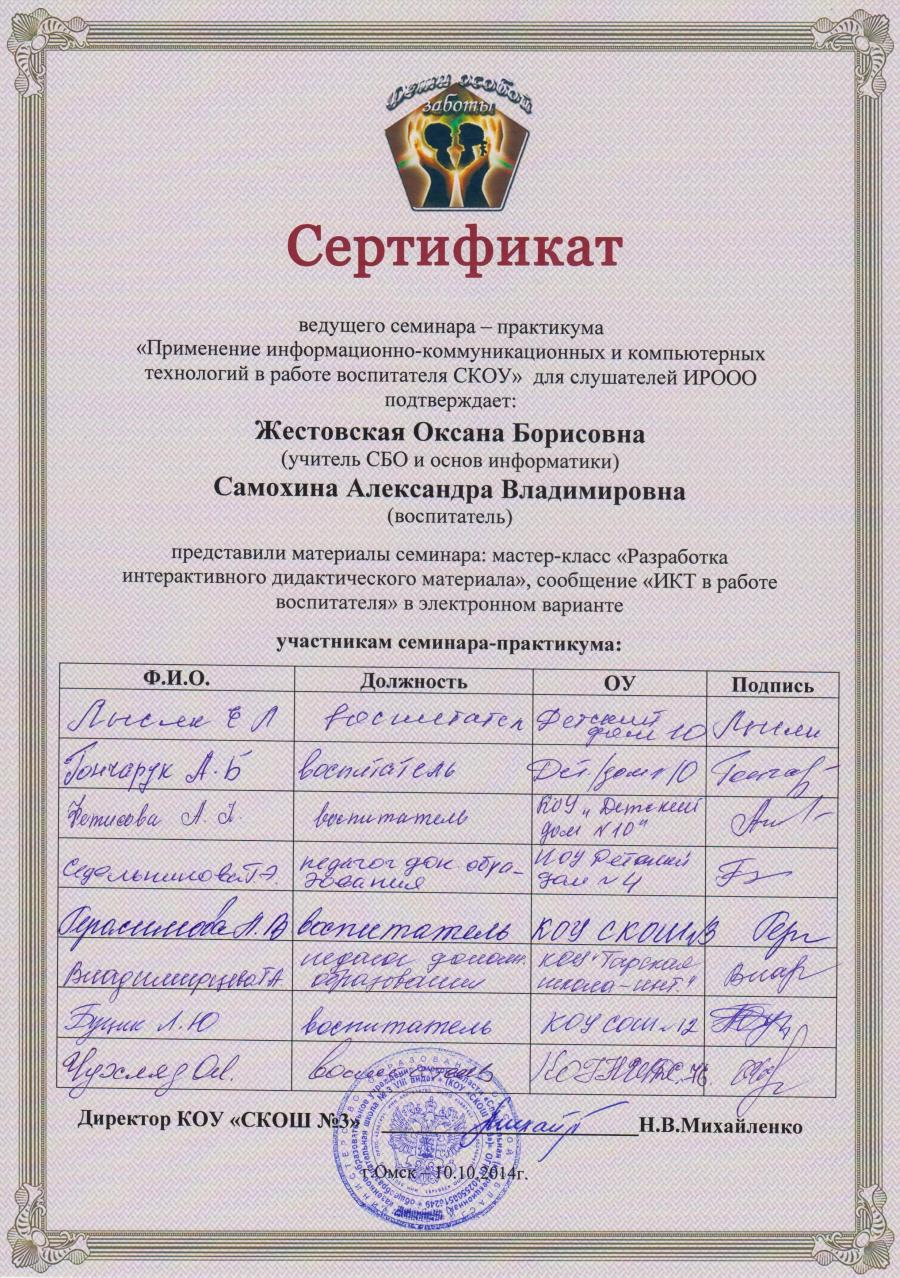 Дети особой
заботы
Сертификат
ведущего семинара – практикума
«Применение информационно-коммуникационных и компьютерных
технологий в работе воспитателя СКОУ» для слушателей ИРООО
подтверждает:
Жестовская Оксана Борисовна
(учитель СБО и основ информатики)
Самохина Александра Владимировна
(воспитатель)
представили материалы семинара: мастер-класс «Разработка
интерактивного дидактического материала», сообщение «ИКТ в работе
воспитателя» в электронном варианте
участникам семинара-практикума:
Ф.И.О. Должность ОУ Подпись
Лысяк Е Л воспитатель Детский
дом 10
Гончарук А.Б воспитатель Дет/дом 10
Фетисова А. воспитатель КОУ "Детский
дом №10"
педагог доп. обра-
зования Детский
дом №4
Герасимова Н.В воспитатель КОУ СКОШ №3 Гер
Владимирцева Т.А. педагог дополн.
образования КОУ "Тарская
школа-инт."
Буцик Л.Ю воспитатель КОУ СОШ №12
воспитатель
Директор КОУ «СКОШ №3» Н.В.Михайленко
г.Омск – 10.10.2014г.